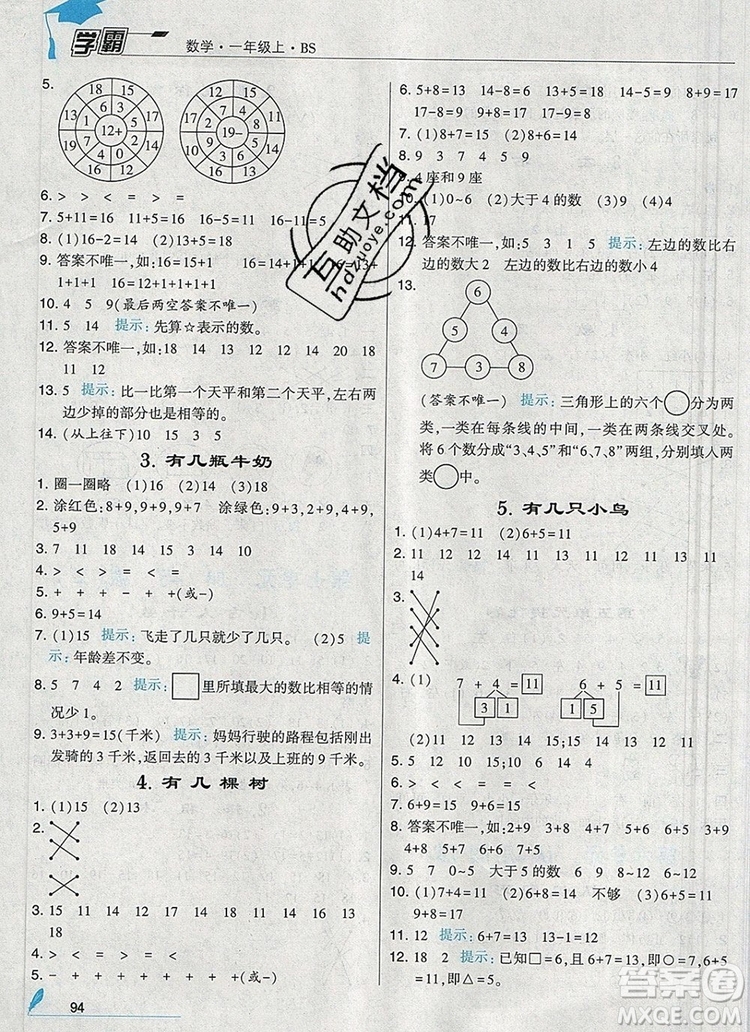 学霸
数学·一年级上·BS
5.
18 15
13 16
17 14
19 12
6 3
1 4
5 2
7 0
12+
15 12
14
16 13
17 11
18
19-
6. > > < = > =
7. 5+11=16 16-5=11 16-11=5
8. (1)16-2=14 (2)13+5=18
9. 答案不唯一,如:16=15+1
1+1+1 18=16+1+1
10. 4 5 9 (最后两空答案不唯一)
11. 5 14 提示:先算☆表示的数。
12. 答案不唯一,如:10 17 18 12 14 20 18
11 12
13. 5 提示:比一比第一个天平和第二个天平,左右两
边少掉的部分也是相等的。
14. (从上往下)10 15 5 14
3. 有几瓶牛奶
1. 圈一圈略 (1)15 (2)14 (3)18
2. 涂红色:8+9,9+9,9+7 涂绿色:9+3,9+6,
5+9
3. 7 11 18 14 10 15 14
4. > < > < = <
5. + - + - +(或-)
6. 9+5=14
7. (1)15 提示:飞走了几只就少了几只。 (2)5 提
示:年龄差不变。
8. 5 7 4 2 提示:□里所填最大的数比相等的情
况少1。
9. 3+3+9=15(千米) 提示:妈妈行驶的路程包括刚出
发骑的3千米,返回去的3千米以及上班的9千米。
4. 有几棵树
1. (1)15 (2)13
2.
3. 15 14 11 12 17 11 16 14 18 13
18
4. > < > = < <
5. - + - - + + + +(或-)
94
6. 5+8=13 14-8=6 13+5=18 14-5=9 8+9=17
17-8=9 9+8=17
7. (1)8+7=15 (2)6+7=13
8. 9 13 15 14
9. 4座和9座
10. (1)0~6 (2)大于4的数 (3)9 (4)4
11. 17
12. 答案不唯一,如:5 3 1 5 提示:左边的数比右
边的数大2 左边的数比右边的数小4
13.
6
5 4
7 3 8
(答案不唯一) 提示:三角形上的六个○分为两
类,一类在每条线的中间,一类在两条线交叉处。
将6个数分成“3、4、5”和“6、7、8”两组,分别填入两
类○中。
5. 有几只小鸟
1. (1)4+7=11 (2)6+5=11
2. 11 12 12 11 13 11 12 13 11 11
14
3.
4. (1) 7 + 4 = 11 6 + 5 = 11
3 1 1 5
(2)12 11 13 11 12 12 11 14
5. 9 12 15 7 12 18
6. > < > = = <
7. 6+9=15 9+6=15
8. 答案不唯一,如:2+9 3+8 4+7 5+9 6+8
4+8 5+7 6+6
9. 5 7 0~5 大于5的数 8 3
10. (1)6+7=13 (2)6+8=14 不够 (3)9+6=15
9+8=17
11. 12 提示:6+7=13 13-1=12
12. (1)√ 提示:已知□=6,△=5,可算出○=7,6+
5=11,即△+□=11。
互助文档
答案圈
MXQE.COM